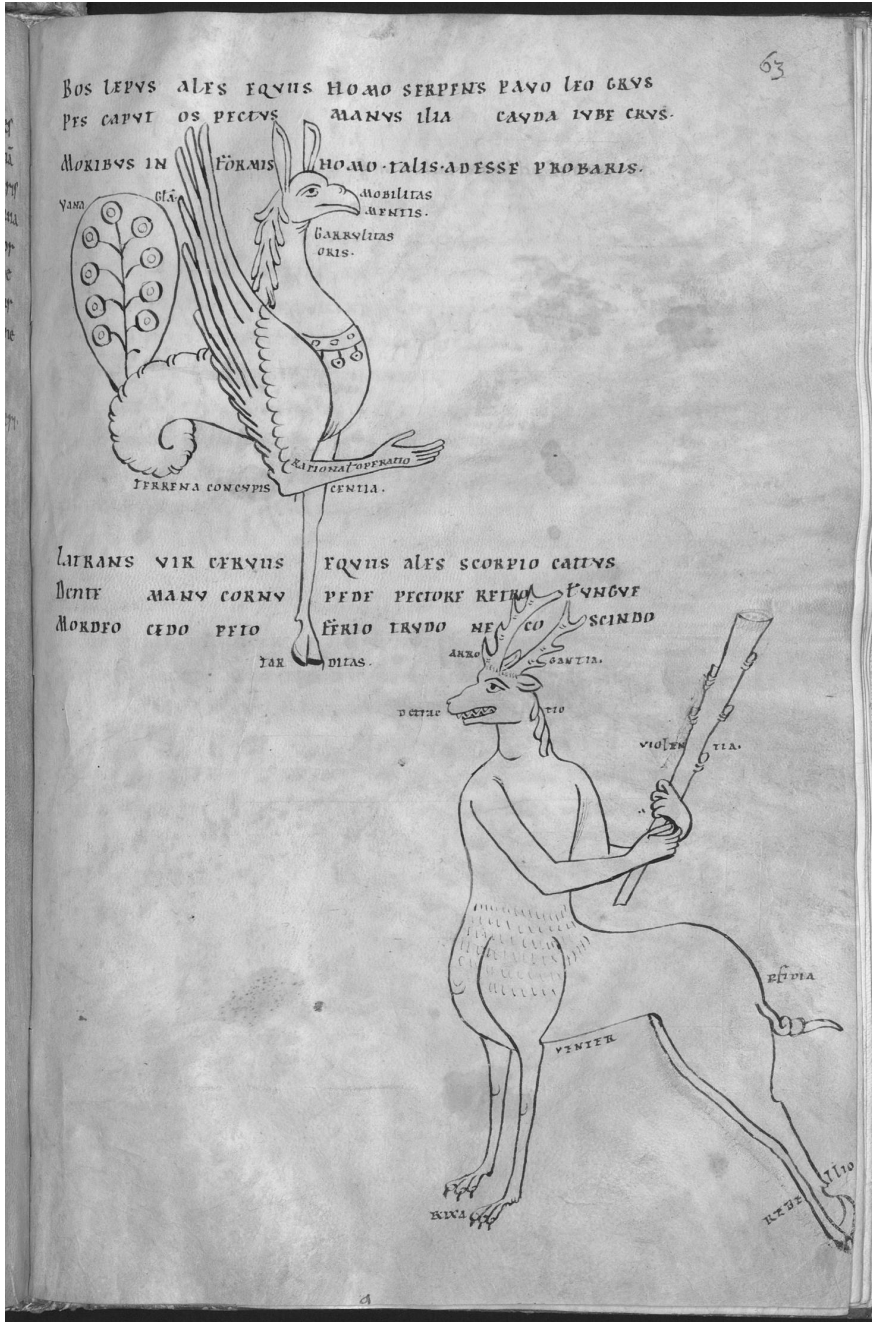 63
BOS LEPVS ALES EQVUS HOMO SERPENS PAVO LEO GRVS
PES CAPVT OS PECTVS MANVS ILIA CAVDA IVBE CRVS.
MORIBVS IN FORMIS HOMO·TALIS·ADESSE PROBARIS.
VANA GLA
MOBILITAS
MENTIS.
GARRVLITAS
ORIS.
RATIONAL OPERATIO
TERRENA CONCVPIS CENTIA.
LATRANS VIR CERVUS EQVUS ALES SCORPIO CATTVS
DENTE MANV CORNV PEDE PECTORE RETRO VNGVE
MORDEO CEDO PETO FERIO TRVDO NECO SCINDO
TAR DITAS.
ARRO GANTIA.
DETRAC TIO
VIOLEN TIA.
VENTER
RIXA
REBE LLIO